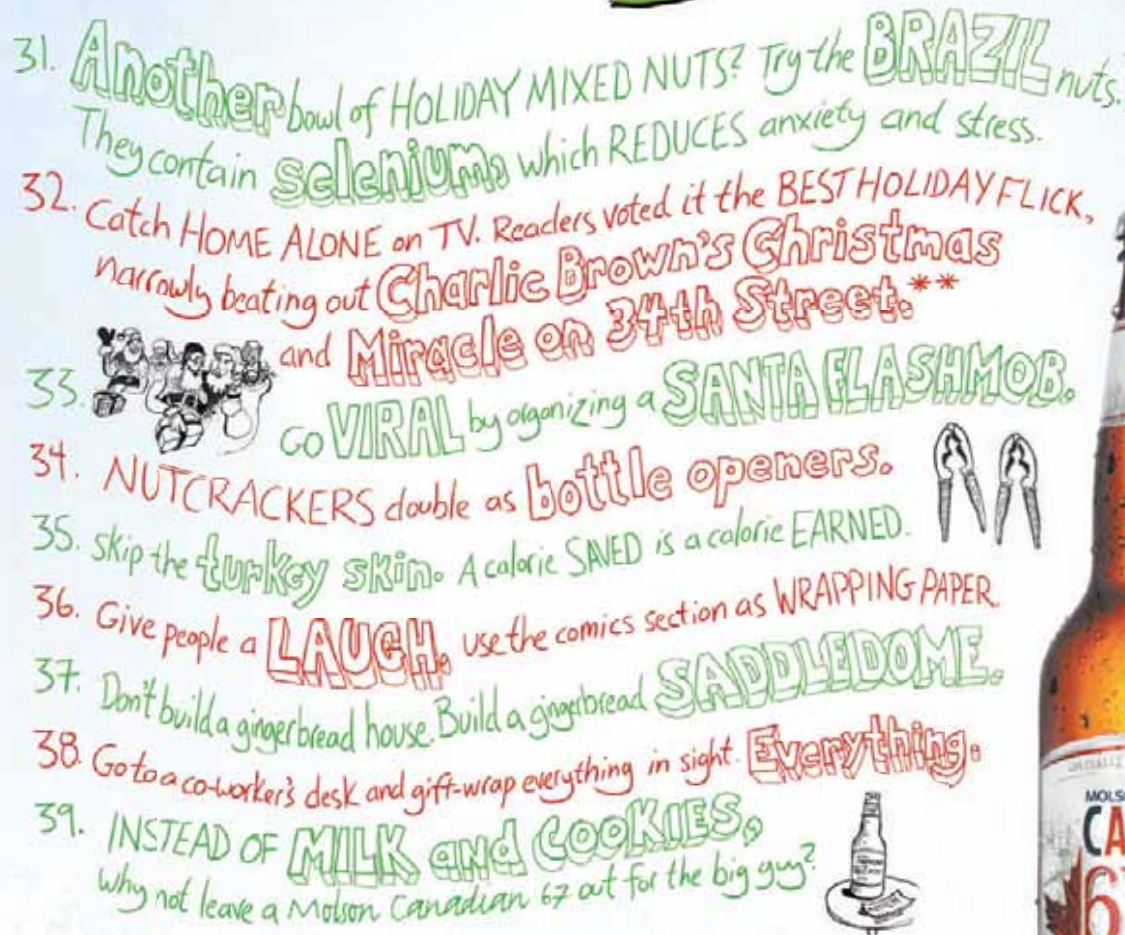 31. Another bowl of HOLIDAY MIXED NUTS? Try the BRAZIL nuts.
They contain selenium, which REDUCES anxiety and stress.
32. Catch HOME ALONE on TV. Readers voted it the BEST HOLIDAY FLICK,
narrowly beating out Charlie Brown's Christmas
and Miracle on 34th Street.**
33. Go VIRAL by organizing a SANTA FLASHMOB.
34. NUTCRACKERS double as bottle openers.
35. Skip the turkey skin. A calorie SAVED is a calorie EARNED.
36. Give people a LAUGH, use the comics section as WRAPPING PAPER.
37. Don't build a gingerbread house. Build a gingerbread SADDLEDOME.
38. Go to a co-worker's desk and gift-wrap everything in sight. Everything.
39. INSTEAD OF MILK and COOKIES,
why not leave a Molson Canadian 67 out for the big guy?
SPECIALLY
MOLS
CA
67